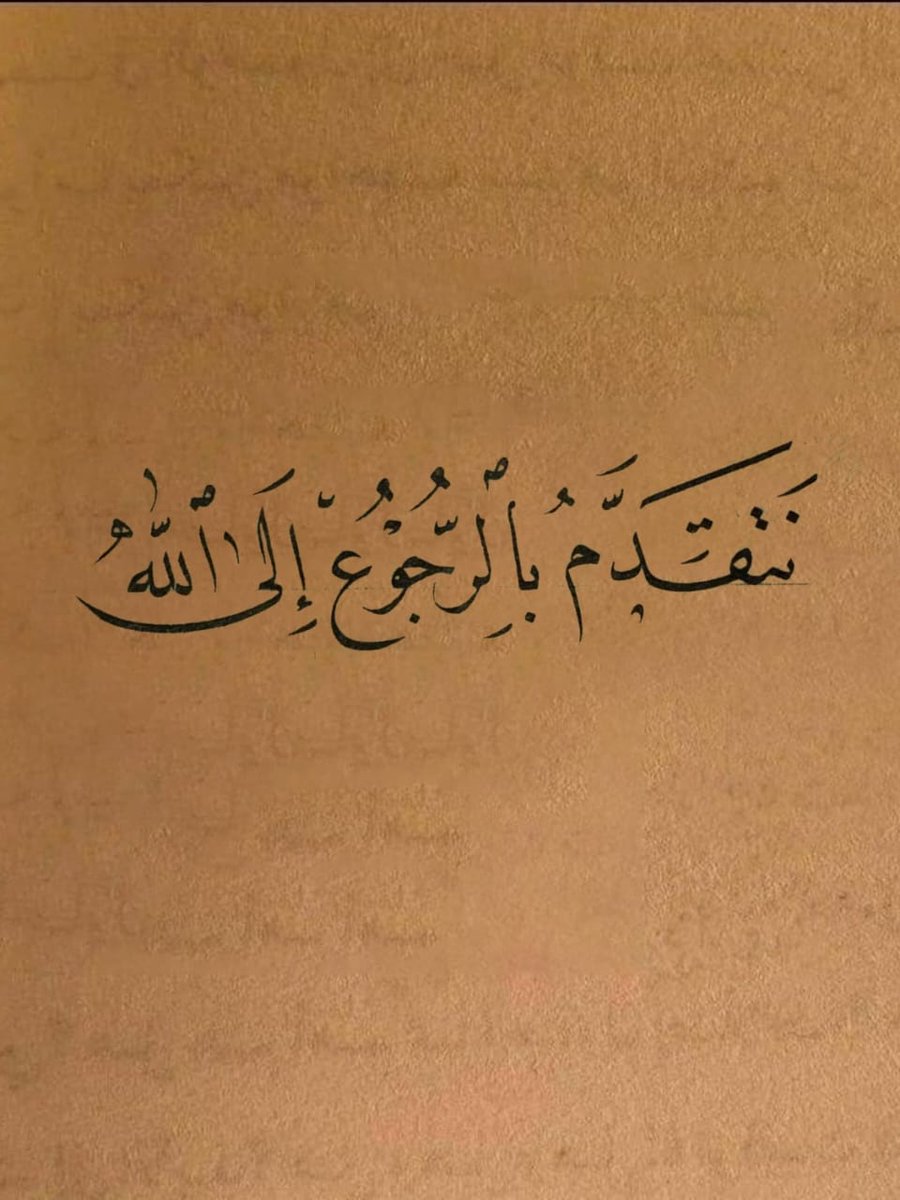 نَتَقَدَّمُ بِٱلرُّجُوْعِ إِلَى ٱللّٰهِ